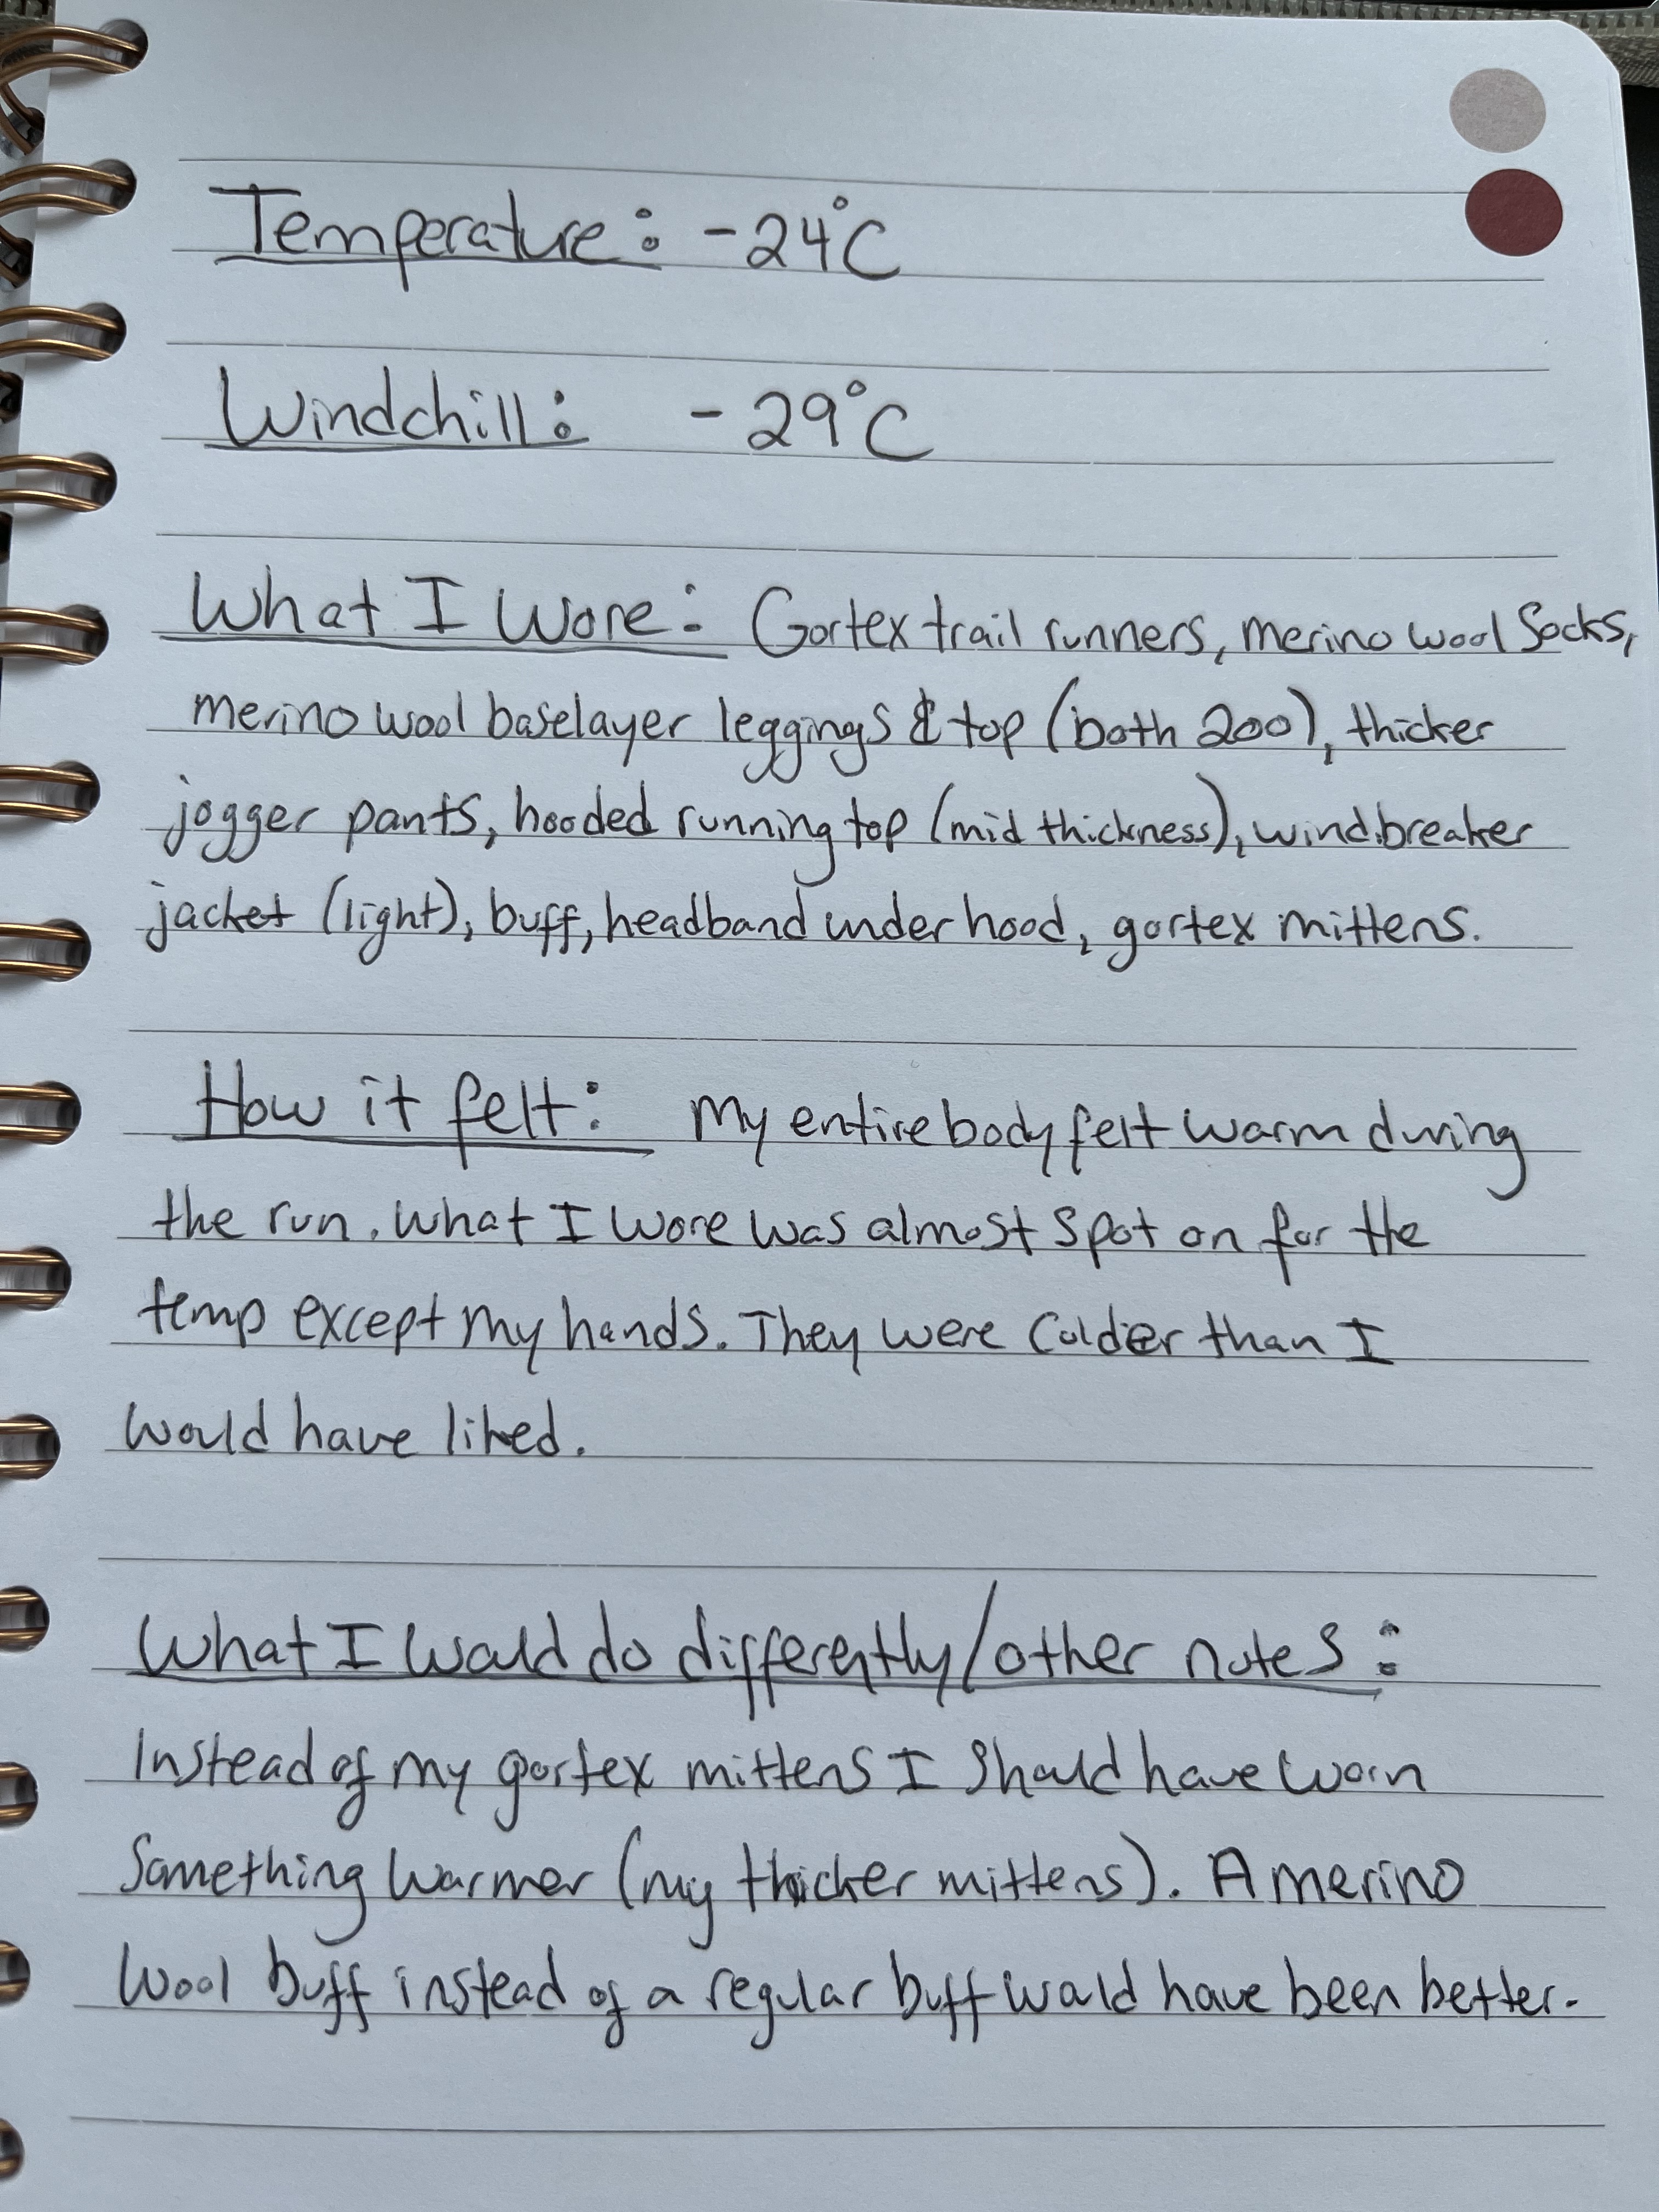 Temperature: -24°C
Windchill: -29°C
What I Wore: Gortex trail runners, merino wool Socks,
merino wool baselayer leggings & top (both 200), thicker
jogger pants, hooded running top (mid thickness), windbreaker
jacket (light), buff, headband under hood, gortex mittens.
How it felt: My entire body felt warm during
the run. What I wore was almost spot on for the
temp except my hands. They were colder than I
would have liked.
What I would do differently/other notes:
Instead of my gortex mittens I should have worn
Something warmer (my thicker mittens). A merino
wool buff instead of a regular buff would have been better.